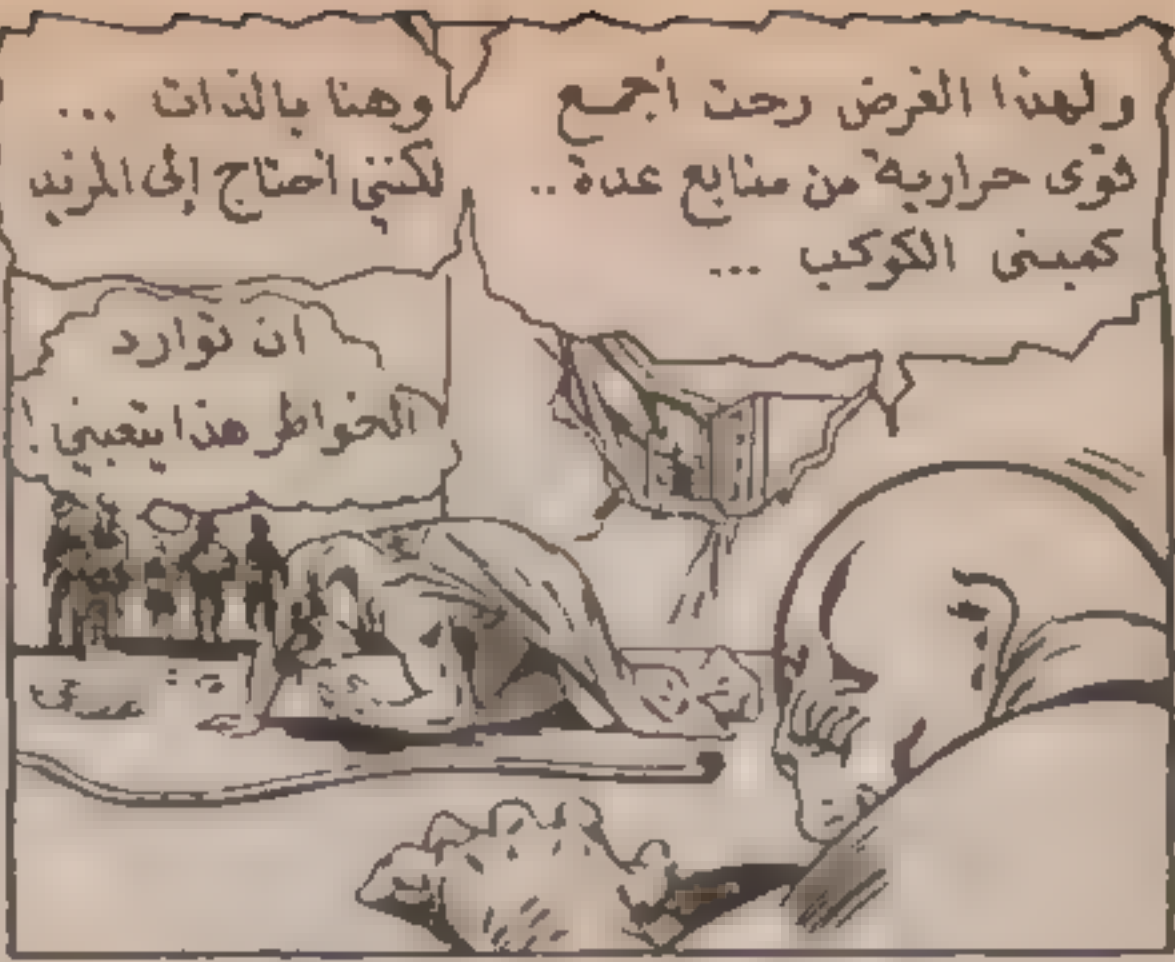 ولهذا الغرض رحت أجمع
قوى حرارية من منابع عدة ..
كمبنى الكوكب ...
وهنا بالذات ...
لكنني احتاج إلى المزيد
ان توارد
الخواطر هذا يتعبني !